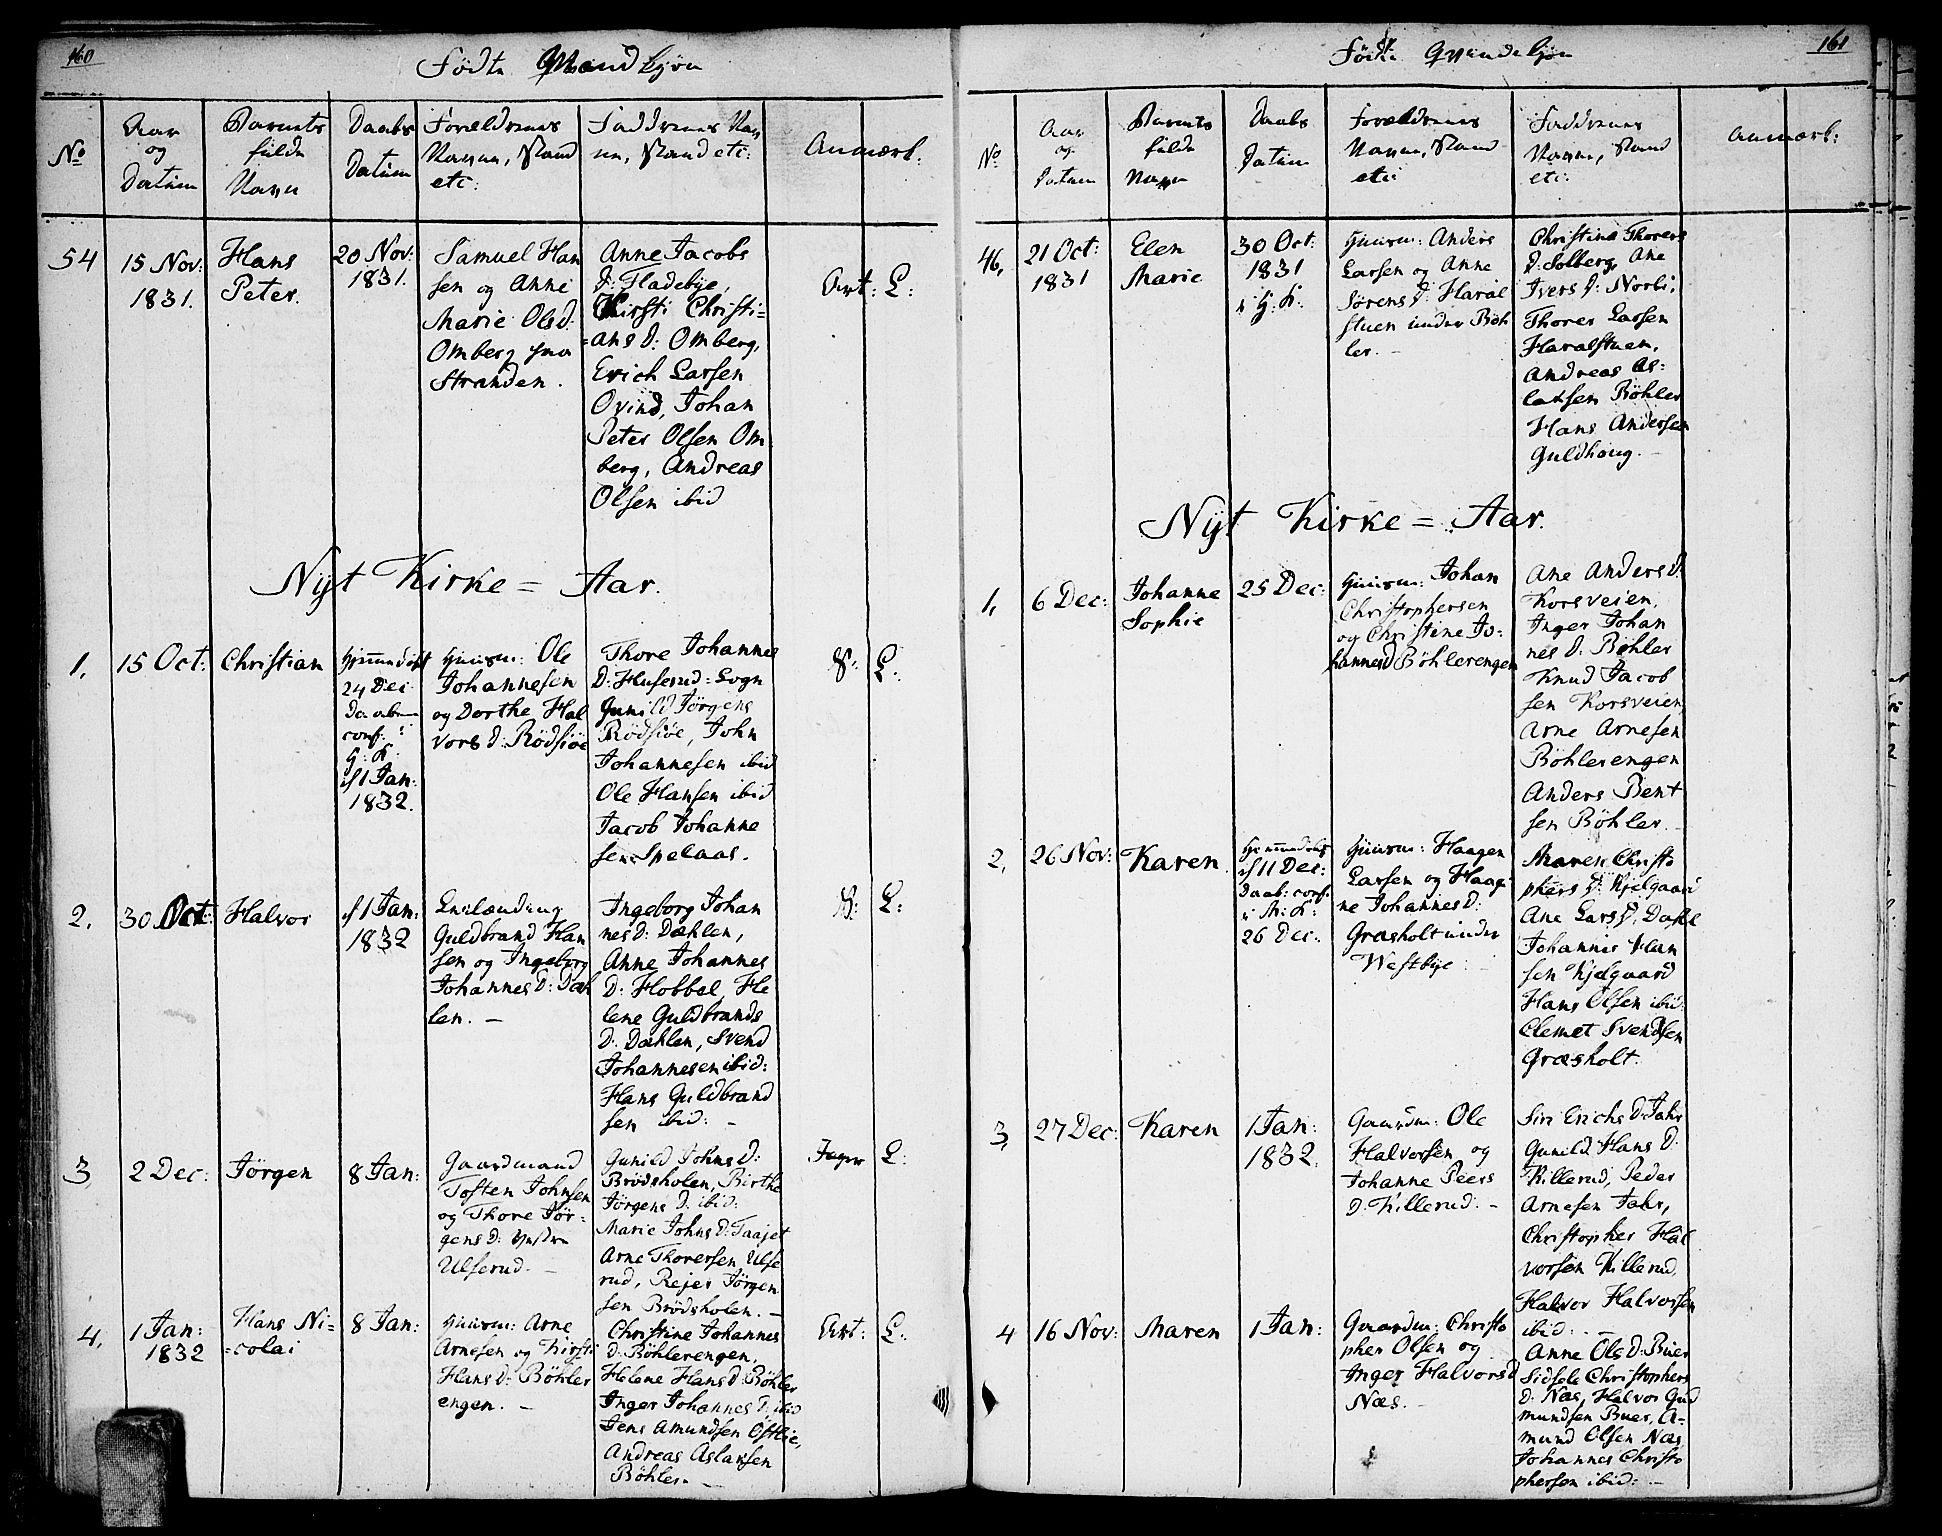 160
Fødte Mandkjøn
No
Aar
og
Datum
Barnets
fulde
Navn
Daabs
Datum
Foreldrenes
Navne, Stand
etc:
Faddrenes Nav
ne, Stand etc:
Anmærk:
54
15 Nov:
1831.
Hans
Peter.
20 Nov:
1831.
Samuel Han
sen og Anne
Marie Olsd:
Omberg
Stranden.
Anne Jacobs
D: Fladebye,
Kirsti Christi=
=ans D: Omberg,
Erich Larsen
Ovind, Johan
Peter Olsen Om
berg, Andreas
Olsen ibid
Art: L:
Nyt Kirke = Aar.
1.
15 Oct:
Christian
Hjemmedøbt
24 Dec
Daaben
conf: i
H: K:
d 1 Jan:
1832.
Huusm: Ole
Johannesen
og Dorthe Hal
vors D: Rödsiöe
Thore Johannes
D: Huserud: Sogn
Gunild Jörgens
Rödsiöe, John
Johannesen ibid
Ole Hansen ibid
Jacob Johanne
sen Spelaas.
S: L:
2.
30 Oct:
Halvor
d 1 Jan:
1832
Guldbrand Han
sen og Ingeborg
Johannes D: Dæh
len. —
Ingeborg Johan
nes D: Dæhlen,
Anne Johannes
D: Hobbel, He
lene Guldbrands
D: Dæhlen, Svend
Johannesen ibid:
Hans Guldbrand
sen ibid: —
S: L:
3
2 Dec:
Jörgen
8 Jan:
Gaardmand
Tosten Johnsen
og Thore Jör=
gens D: Vestre
Ulserud. —
Gunild Johns D:
Brödsholen, Birthe
Jörgens D: ibid:
Marie Johns D: Taajet
Arne Thoresen Ulse
rud, Rejer Jörgen
sen Brödsholen. —
L:
4.
1 Jan:
1832
Hans Ni=
=colai
8 Jan:
Huusm: Arne
Arnesen og Kirsti
Hans D: Böhler
engen. —
Christine Johannes
D: Böhlerengen,
Helene Hans D: Böhler
Inger Johannes D: ibid
Jens Amundsen Östlie,
Andreas Aslaksen
Böhler. —
Art: L:
161
Fødte Qvindekjøn
No
Aar
og
Datum
Barnets
fulde
Navn
Daabs
Datum
Forældrenes
Navne, Stand
etc:
Faddrenes
Navne, Stand
etc:
Anmærk:
46.
21 Oct:
1831
Elen
Marie
30 Oct:
1831
i H: K:
Huusm: Anders
Larsen og Anne
Sörens D: Haral
stuen under Böh
ler. —
Christina Thorers
D: Solberg, Ane
Ivers D: Norbi,
Thorer Larsen
Haralstuen,
Andreas As=
laksen Böhler
Hans Andersen
Guldhaug. —
Nyt Kirke = Aar.
1.
6 Dec:
Johanne
Sophie
25 Dec:
Huusm: Johan
Christophersen
og Christine Jo=
hannesD Böhlerengen
Ane Anders D:
Korsveien,
Inger Johan
nes D: Böhler
Knud Jacob
sen Korsveien
Arne Arnesen
Böhlerengen
Anders Bent
sen Böhler. —
2.
26 Nov:
Karen.
Hjemmedøbt
d 11 Dec:
Daab: conf.
i K:
26 Dec:
Huusm: Haagen
Larsen og Haag
ne Johannes D:
Græsholt under
Westbye: —
Maren Christo
phers D: Kjelgaard
Ane Lars D:
Johannis Han
sen Kjelgaard
Hans Olsen ibid:
Clemet Svendsen
Græsholt.
3.
27 Dec:
Karen
1 Jan:
1832.
Gaardm: Ole
Halvorsen og
Johanne Peers
D: Killerud: —
Siri Erichs D: Fahr
Gunild Hans D:
Killerud, Peder
Arnesen Fahr,
Christopher Hal
vorsen Killerud,
Halvor Halvorsen
ibid: —
4
16 Nov:
Maren
1 Jan:
Gaardm: Christo
pher Olsen og
Inger Halvors D
Næs. —
Anne Ols D: Buer
Sidsele Christophers
D: Næs, Halvor Gud
mundsen Buer, A=
mund Olsen Næs
Johannes Christo
phersen ibid: —